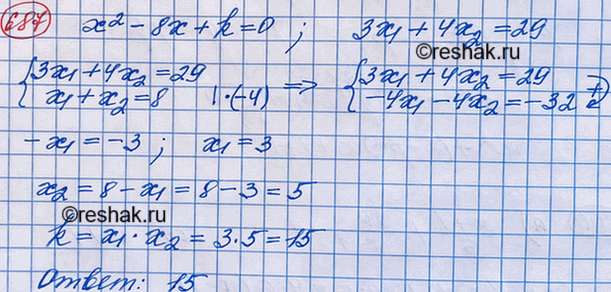 687 x² - 8x + k = 0 ; 3x₁ + 4x₂ = 29
©reshak.ru
{3x₁ + 4x₂ = 29 => {3x₁ + 4x₂ = 29
x₁ + x₂ = 8 |·(-4) -4x₁ - 4x₂ = -32 +
-x₁ = -3 ; x₁ = 3
©reshak.ru
x₂ = 8 - x₁ = 8 - 3 = 5
©reshak.ru
k = x₁ · x₂ = 3·5 = 15
Ответ: 15